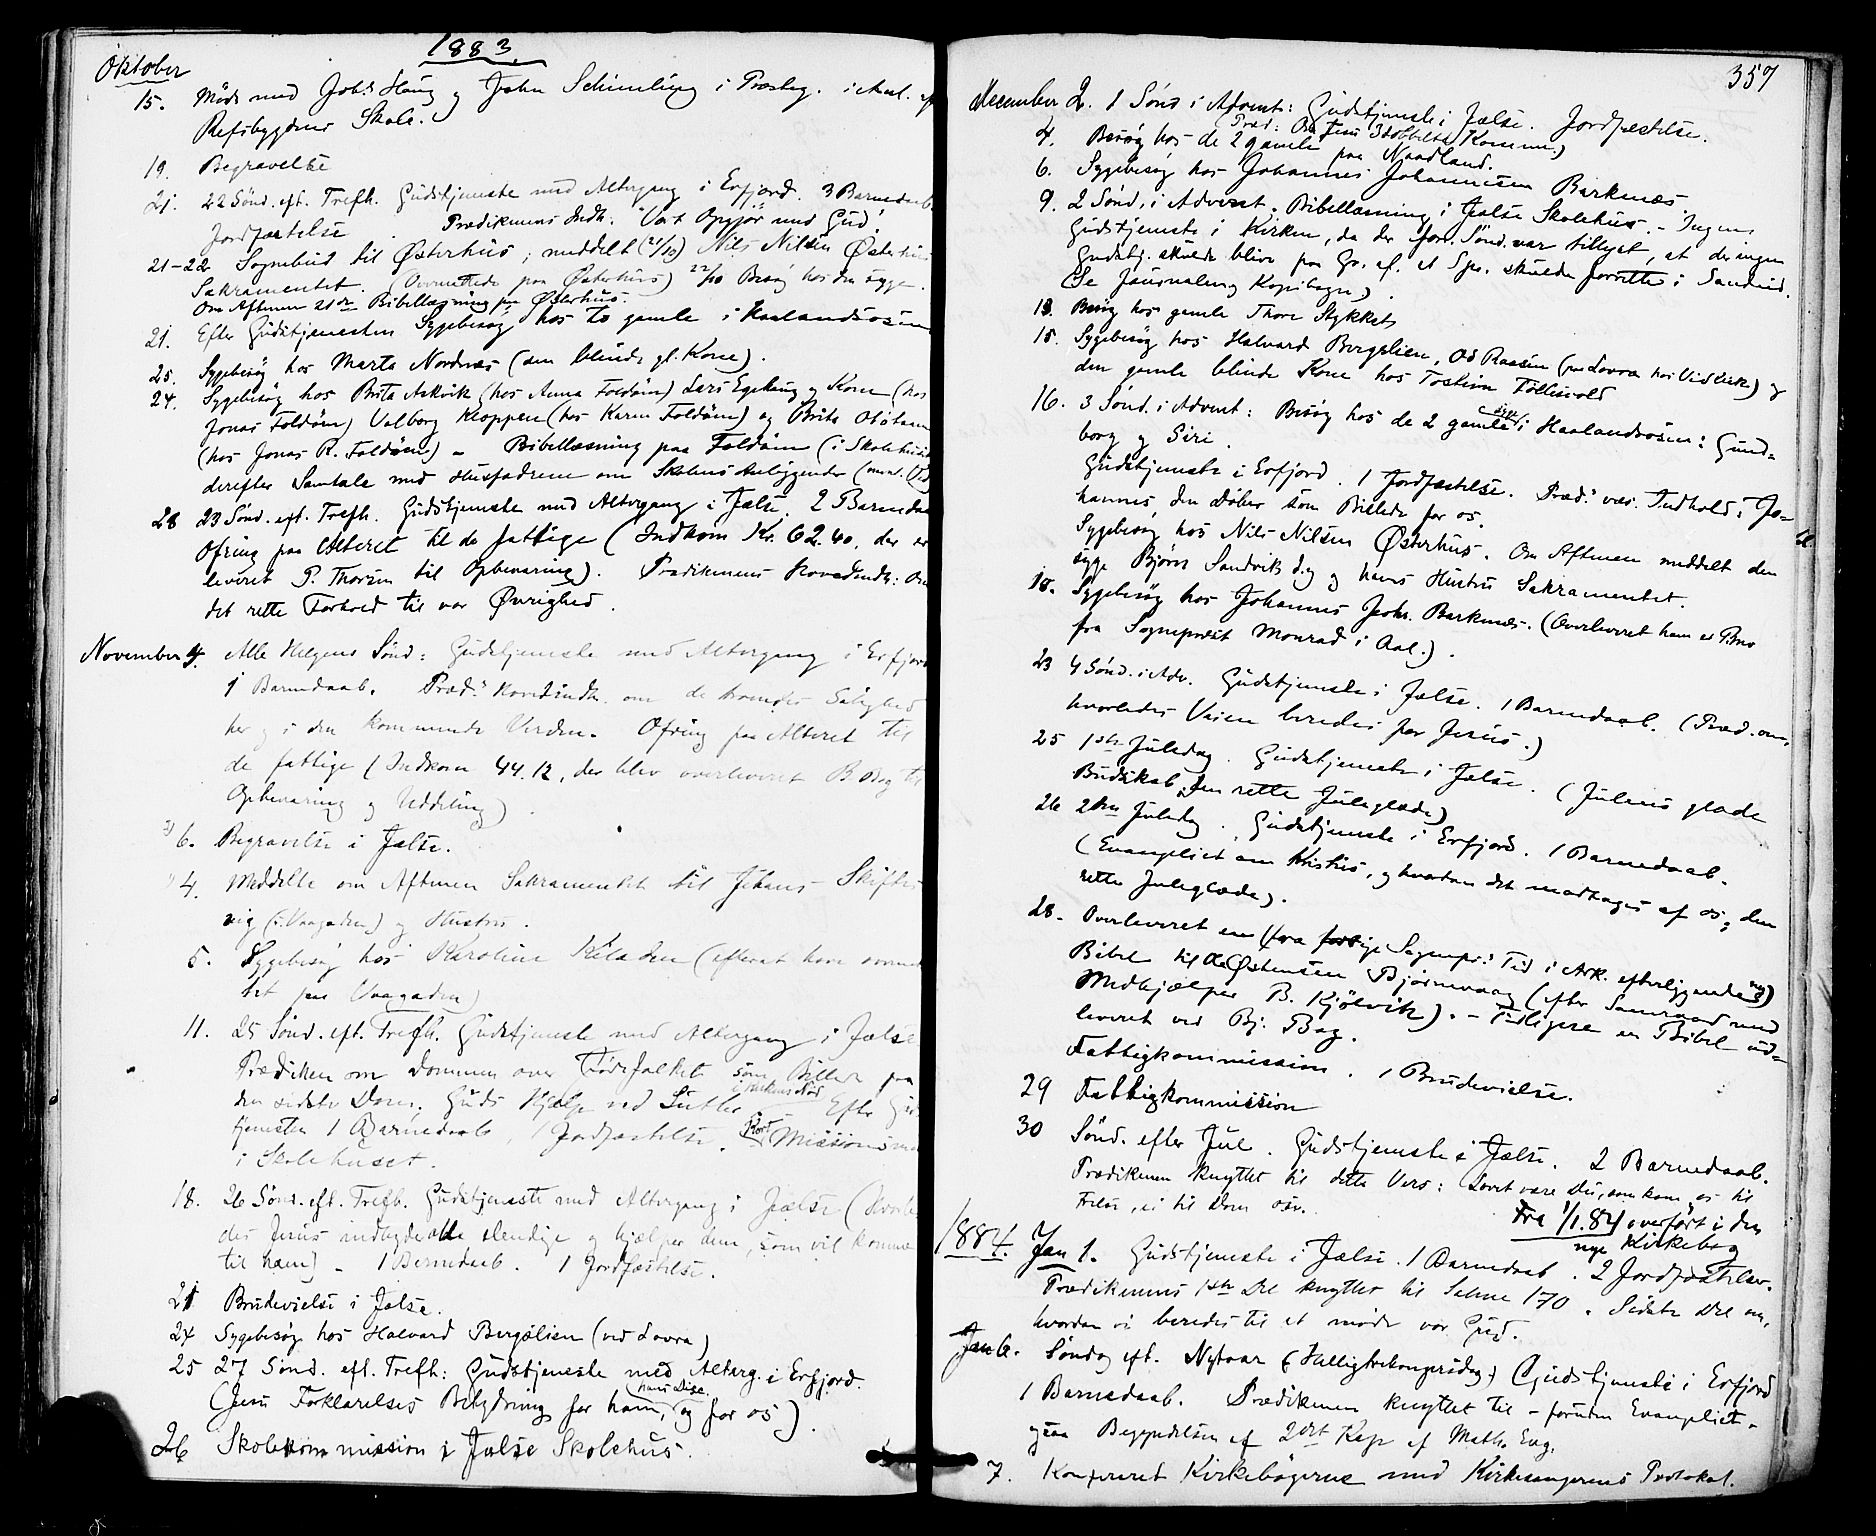 1883.
Oktober
15. Møde med Joh.s Haug og John Schimeling i Præsteg. i Anl. af
Refsbygdens Skole.
19. Begravelse
21. 22 Sønd. eft. Trefh. Gudstjeneste med Altergang i Erfjord. 3 Barnedaab
Jordfæstelse. Prædikenens Indh. "Vort Opgjør med Gud".
21-22 Sognebud til Østerhus; meddelt (21/10) Nils Nilsen Østerhus
Sakramentet. (Overnattede paa Østerhus) 22/10 Besøg hos den syge.
Om Aftenen 21de Bibellæsning paa Østerhus.
21. Efter Gudstjenesten Sygebesøg hos to gamle i Haalandsosen
25. Sygebesøg hos Marta Nordnæs (den blinde gl. Kone).
24. Sygebesøg hos Brita Askvik (hos Anna Foldøen) Lars Egeland og Kone (hos
Jonas Foldøen) Valborg Kloppen (hos Karen Foldøen) og Brita
(hos Jonas R. Foldøen) – Bibellæsning paa Foldøen (i Skolehuset
derefter Samtale med Husfædrene om Skolens Anliggender
28 23 Sønd. eft. Trefh. Gudstjeneste med Altergang i Jælse. 2 Barnedaab
Ofring paa Alteret til de fattige (Indkom Kr. 62.40, der er
leveret P. Thorsen til Opbevaring). Prædikenens Hovedindh: Om
det rette Forhold til vor Øvrighed.
November 4. Alle Helgens Sønd: Gudstjeneste med Altergang i Erfjord
1 Barnedaab. Præd.s Hovedindh. om de troendes Salighed
her og i den kommende Verden. Ofring paa Alteret til
de fattige (Indkom 44.12, der blev overleveret B Bog til
Opbevaring og Uddeling).
6. Begravelse i Jælse.
4. Meddelte om Aftenen Sakramentet til Johans Skiftes
vig (i Vaagaden) og Hustru.
5. Sygebesøg hos Karoline Kiladen (efterat have overnat
tet paa Vaagaden)
11. 25 Sønd. eft. Trefh. Gudstjeneste med Altergang i Jælse
Prædiken om Dommen over Jødefolket som Billede paa
den sidste Dom. Guds Hjælp ved Luther i Kirkens Nød. Efter Gud
tjenesten 1 Barnedaab, 1 Jordfæstelse. Kort Missionsmø
i Skolehuset.
18. 26 Sønd. eft. Trefh. Gudstjeneste med Altergang i Jælse (Hvorle
des Jesus indbyder alle elendige og hjælper dem, som vil komme
til ham) – 1 Barnedaab. 1 Jordfæstelse.
21 Brudevielse i Jælse.
24 Sygebesøg hos Halvard Bergelien (ved Lovra)
25 27 Sønd. eft. Trefh: Gudstjeneste med Alterg. i Erfjord.
(Jesu Forklarelses Betydning for ham, hans Disc. og for os).
26 Skolekommission i Jælse Skolehus.
357
December 2. 1 Sønd i Advent: Gudstjeneste i Jælse. Jordfæstelse.
(Præd: Om Jesu 3dobbelte Komme)
4. Besøg hos de 2 gamle paa Naadland.
6. Sygebesøg hos Johannes Johannesen Barknæs
9. 2 Sønd. i Advent. Bibellæsning i Jælse Skolehus. – Ingen
Gudstjeneste i Kirken, da der forr. Sønd. var tillyst, at der ingen
Gudstj. skulde blive paa Gr. af, at Spr. skulde forrette i Sandeid.
(Se Journal og Kopibogen).
13. Besøg hos gamle Thore Stykket
15. Sygebesøg hos Halvard Bergelien, Od Raasen (paa Lovra hos Vidvik) og
den gamle blinde Kone hos Tostein Tøllisvold
16. 3 Sønd. i Advent: Besøg hos de 2 gamle syge i Haalandsosen: Gund-
borg og Siri.
Gudstjeneste i Erfjord. 1 Jordfæstelse. Præd.s væs. Indhold: Jo-
hannes, den Døber som Billede for os.
Sygebesøg hos Nils Nilsen Østerhus. Om Aftenen meddelt den
syge Bjørn Sandvik d.y og hans Hustru Sakramentet.
18. Sygebesøg hos Johannes Johs. Barknæs. (Overleveret ham et Brev
fra Sogneprest Monrad i Aal.).
23 4 Sønd. i Adv. Gudstjeneste i Jælse. 1 Barnedaab. (Præd. om,
hvorledes Veien beredes for Jesus.)
25 1ste Juledag. Gudstjeneste i Jælse. (Julens glade
Budskab, Den rette Juleglæde)
26 2den Juledag. Gudstjeneste i Erfjord. 1 Barnedaab.
(Evangeliet om Kristus, og hvordan det modtages af os; den
rette Juleglæde).
28. Overleveret en (fra forrige Sognepr.s Tid i Ark. efterliggende ny)
Bibel til Østensen Bjørnevaag (efter Samraad med
Medhjælper B. Kjølvik). – Tidligere en Bibel ud-
leveret ved Bj. Bog.
Fattigkommission. 1 Brudevielse.
29 Fattigkommission
30 Sønd. efter Jul. Gudstjeneste i Jælse. 2 Barnedaab.
Prædikenen knyttet til dette Vers: Lovet være Du, som kom os til
Frelse, ei til Dom osv.
Fra 1/1.84 overført i den
nye Kirkebog
1884. Jan 1. Gudstjeneste i Jælse. 1 Barnedaab. 2 Jordfæstelser.
Prædikenens 1ste Del knyttet til Salme 170. Sidste Del om,
hvordan vi beredes til at møde vor Gud.
Jan 6. Søndag eft. Nytaar (Helligtrekongersdag) Gudstjeneste i Erfjord
1 Barnedaab. Prædikenen knyttet til – foruden Evangeliet –
ogsaa Begyndelsen af 2det Kap af Math. Evg.
7. Konfereret Kirkebøgerne med Kirkesangerens Protokol.